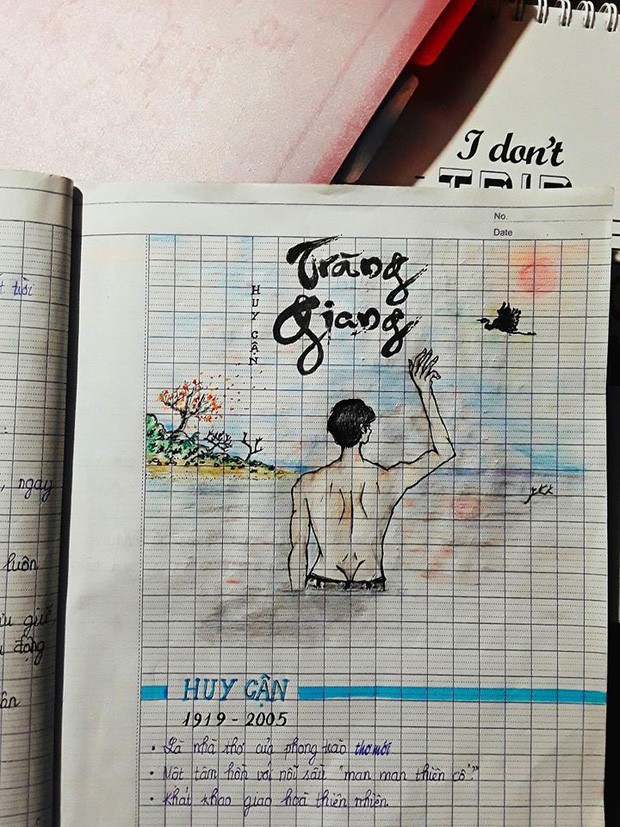 I don't
TRIP
No.
Date
Tràng
Giang
HUY CẬN
tuổi
, ngày
luôn
giữ
động
HUY CẬN
1919 - 2005
• Là nhà thơ của phong trào thơ mới
• Một tâm hồn với nỗi sầu "mang mang thiên cổ"
• Khát khao giao hoà thiên nhiên